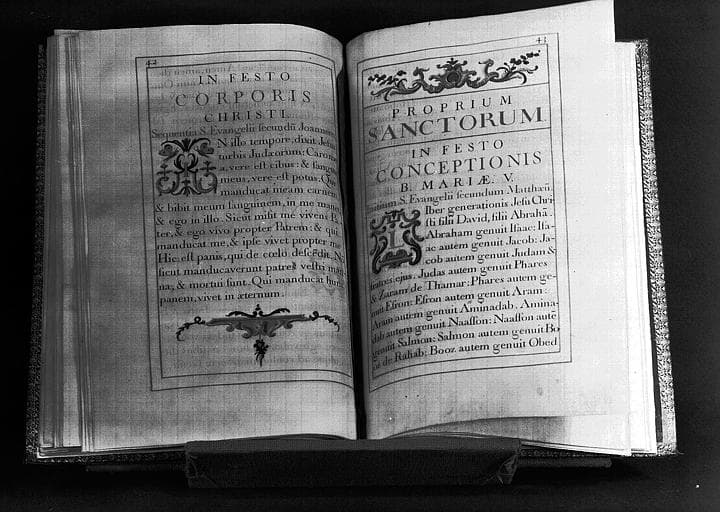 42
IN FESTO
CORPORIS
CHRISTI.
Sequentia S. Evangelii secundū Joannem.
IN illo tempore, dixit Jesus
turbis Judæorum: Caro me
a, vere est cibus: & sanguis
meus, vere est potus. Qui
manducat meam carnem
& bibit meum sanguinem, in me manet
& ego in illo. Sicut misit me vivens Pa
ter, & ego vivo propter Patrem: & qui
manducat me, & ipse vivet propter me
Hic est panis, qui de cœlo descēdit. No
sicut manducaverunt patres vestri man
na; & mortui sunt. Qui manducat hunc
panem, vivet in æternum.
43
PROPRIUM
SANCTORUM
IN FESTO
CONCEPTIONIS
B. MARIÆ. V.
Initium S. Evangelii secundum Matthæū.
LIber generationis Jesu Chri
sti filii David, filii Abrahā.
Abraham genuit Isaac: Isa-
ac autem genuit Jacob: Ja-
cob autem genuit Judam &
fratres ejus. Judas autem genuit Phares
& Zaram de Thamar: Phares autem ge-
nuit Esron: Esron autem genuit Aram.
Aram autem genuit Aminadab. Amina-
dab autem genuit Naasson: Naasson autē
genuit Salmon: Salmon autem genuit Bo
oz de Rahab: Booz autem genuit Obed